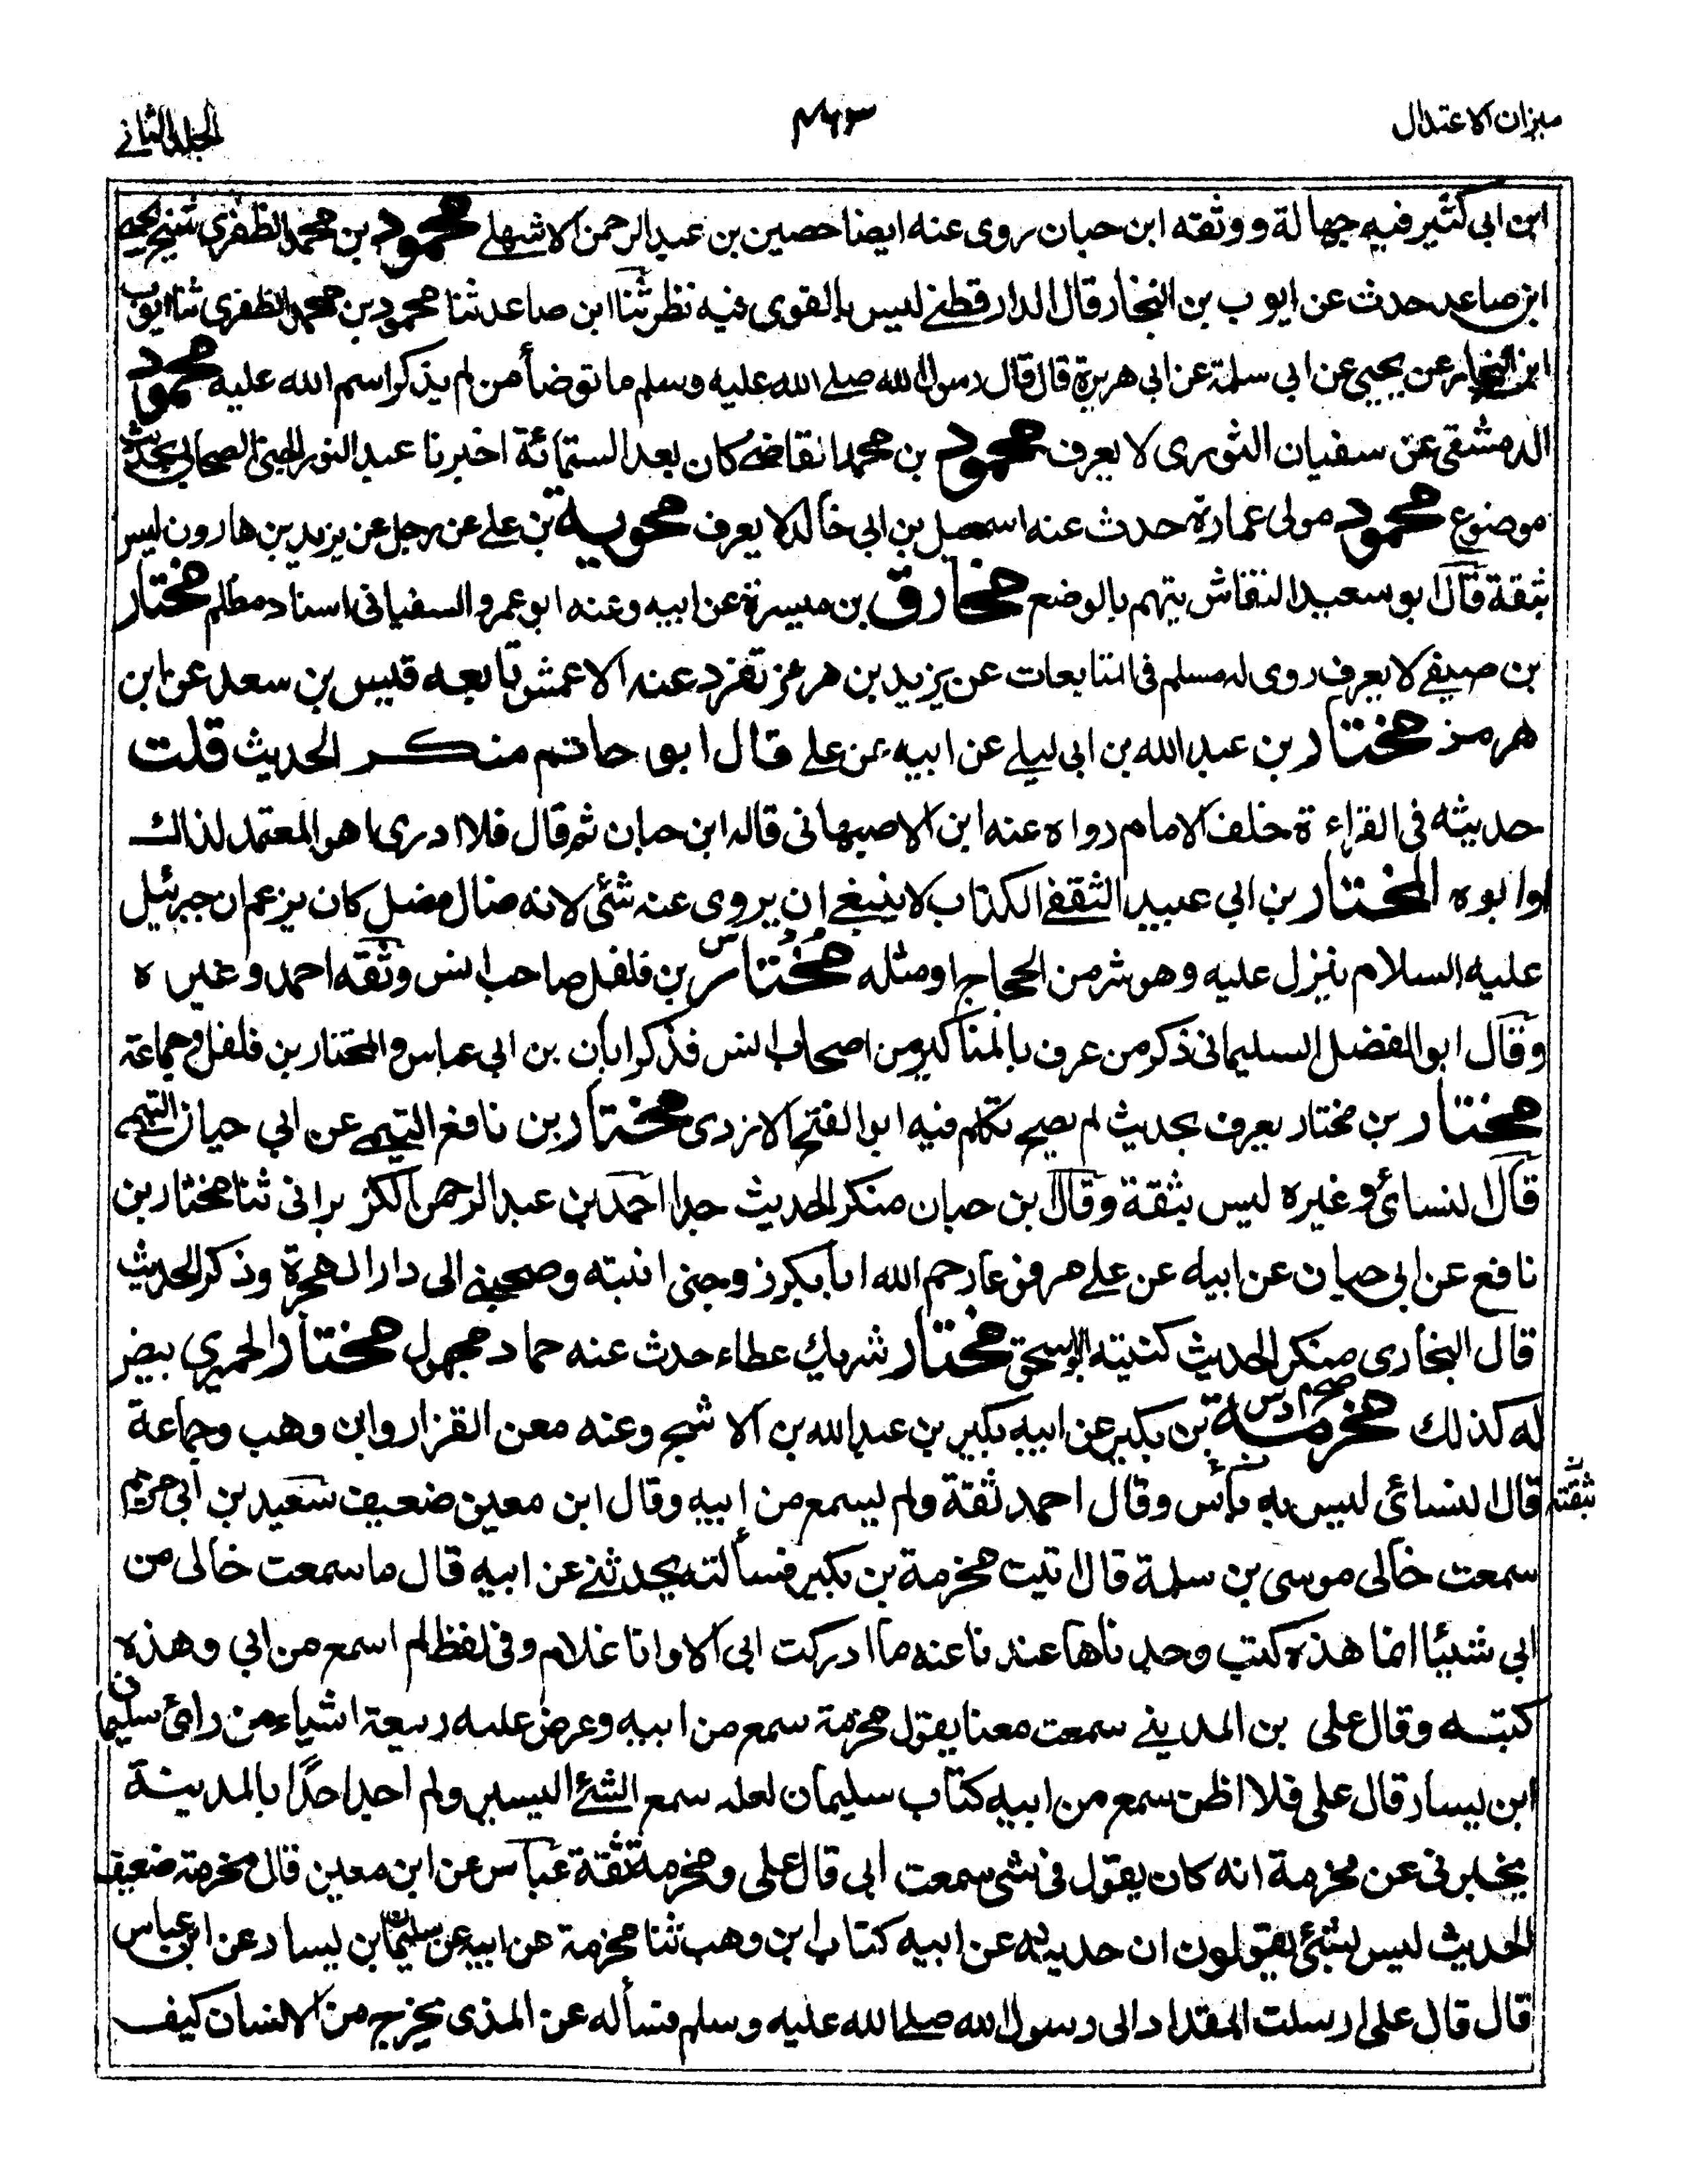 ميزان الاعتدال
۴۶۳
الجلد الثاني
ابن ابى كثير فيه جهالة ووثقه ابن حبان روى عنه ايضا حصين بن عبد الرحمن الاشهلے محمود بن محمد الظفرى شيخ يحيى
ابن صاعد حدث عن ايوب بن النجار قال الدارقطنے ليس بالقوى فيه نظر ثنا ابن صاعد ثنا محمود بن محمد الظفرى ثنا ايوب
ابن النجار عن يحيى عن ابى سلمة عن ابى هريرة قال قال رسول الله صلے الله عليه وسلم ما توضأ من لم يذكر اسم الله عليه محمود
الدمشقى عن سفيان الثورى لا يعرف محمود بن محمد القاضے كان بعد الستمائة اخبرنا عبد النور الجنى الصحابى بحديث
موضوع محمود مولى عمارة حدث عنه اسمعيل بن ابى خالد لا يعرف محويه بن علے عن رجل عن يزيد بن هارون ليس
بثقة قال ابو سعيد النقاش يتهم بالوضع مخارق بن ميسرة عن ابيه وعنه ابو عمرو السفيانى اسناد مظلم مختار
بن صيفے لا يعرف روى له مسلم فى المتابعات عن يزيد بن هرمز تفرد عنه الاعمش تابعه قيس بن سعد عن ابن
هرمز مختار بن عبد الله بن ابى ليلے عن ابيه عن على قال ابو حاتم منكر الحديث قلت
حديثه فى القراءة خلف الامام رواه عنه ابن الاصبهانى قاله ابن حبان ثم قال فلا ادرى اهو المعتمد لذالك
او ابوه المختار بن ابى عبيد الثقفے الكذاب لا ينبغے ان يروى عنه شئ لانه ضال مضل كان يزعم ان جبرئيل
عليه السلام ينزل عليه وهو شر من الحجاج او مثله مختار م د ت س بن فلفل صاحب انس وثقه احمد وغيره
وقال ابو الفضل السليمانى ذكر من عرف بالمناكير من اصحاب انس فذكر ابان بن ابى عياش والمختار بن فلفل وجماعة
مختار بن مختار يعرف بحديث لم يصح تكلم فيه ابو الفتح الازدى مختار بن نافع التيمے عن ابى حيان التيمے
قال النسائى وغيره ليس بثقة وقال ابن حبان منكر الحديث جدا احمد بن عبد الرحمن الكزبرانى ثنا مختار بن
نافع عن ابى حيان عن ابيه عن علے مرفوعا رحم الله ابا بكر زوجنى ابنته وصحبنے الى دار الهجرة وذكر الحديث
قال البخارى منكر الحديث كنيته ابو اسحق مختار شريك عطاء حدث عنه حماد مجهول مختار الحميرى بيض
له كذلك مخرمة صح م د س بن بكير عن ابيه بكير بن عبد الله بن الاشج وعنه معن القزاز وابن وهب وجماعة
ثقة
قال النسائى ليس به باس وقال احمد ثقة ولم يسمع من ابيه وقال ابن معين ضعيف سعيد بن ابى مريم
سمعت خالى موسى بن سلمة قال اتيت مخرمة بن بكير فسألته يحدثنے عن ابيه قال ما سمعت خالى من
ابى شيئا انما هذه كتب وجدناها عندنا عنه ما ادركت ابى الا وانا غلام وفى لفظ لم اسمع من ابى وهذه
كتبه وقال على بن المدينے سمعت معنا يقول مخرمة سمع من ابيه وعرض عليه ربيعة اشياء من رائى سليمان
ابن يسار قال على فلا اظن سمع من ابيه كتاب سليمان لعله سمع الشئ اليسير ولم اجد احدًا بالمدينة
يخبرنى عن مخرمة انه كان يقول فى شى سمعت ابى قال على ومخرمة ثقة عباس عن ابن معين قال مخرمة ضعيف
الحديث ليس بشئ يقولون ان حديثه عن ابيه كتاب ابن وهب ثنا مخرمة عن ابيه عن سليمان بن يسار عن ابن عباس
قال قال على ارسلت المقداد الى رسول الله صلے الله عليه وسلم فسأله عن المذى يخرج من الانسان كيف